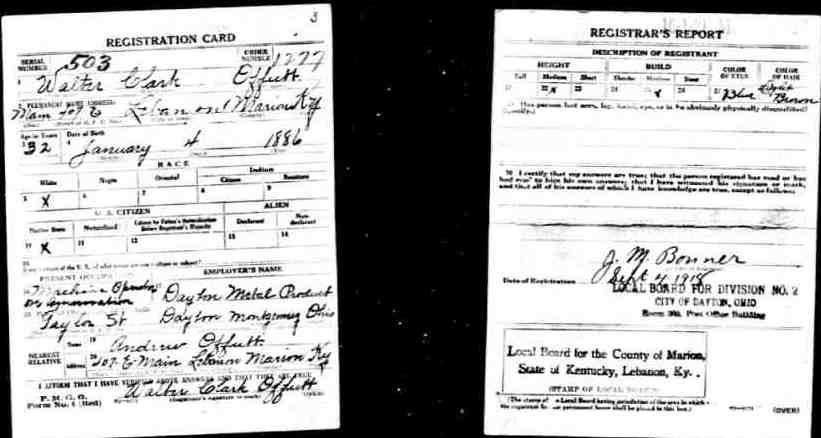 3
REGISTRATION CARD
SERIAL NUMBER 503 ORDER NUMBER 1277
1 Walter Clark Offutt
2 PERMANENT HOME ADDRESS:
Lebanon Marion Ky
Age in Years Date of Birth
3 32 4 January 4 1886
RACE
White Negro Oriental Indian
Citizen Noncitizen
5 X 6 7 8 9
U. S. CITIZEN ALIEN
Native Born Naturalized Citizen by Father's Naturalization Before Registrant's Majority Declarant Non-declarant
10 X 11 12 13 14
15
If not a citizen of the U. S., of what nation are you a citizen or subject?
PRESENT OCCUPATION EMPLOYER'S NAME
Machine Operator
Dayton Metal Product
Taylor St Dayton Montgomery Ohio
NEAREST RELATIVE Name 19 Andrew Offutt
Address 20 207 E-Main Lebanon Marion Ky
I AFFIRM THAT I HAVE VERIFIED ABOVE ANSWERS AND THAT THEY ARE TRUE
P. M. G. O.
Form No. 1 (Red) Walter Clark Offutt
(Registrant's signature or mark) (OVER)
REGISTRAR'S REPORT
DESCRIPTION OF REGISTRANT
HEIGHT BUILD COLOR OF EYES COLOR OF HAIR
Tall Medium Short Slender Medium Stout
21 22 X 23 24 25 X 26 27 Blue 28 Light Brown
29 Has person lost arm, leg, hand, eye, or is he obviously physically disqualified?
(Specify.)
30 I certify that my answers are true; that the person registered has read or has
had read to him his own answers; that I have witnessed his signature or mark,
and that all of his answers of which I have knowledge are true, except as follows:
J. M. Bonner
Date of Registration Sept 4 1918
LOCAL BOARD FOR DIVISION NO. 2
CITY OF DAYTON, OHIO
Room 300, Post Office Building
Local Board for the County of Marion,
State of Kentucky, Lebanon, Ky.
(STAMP OF LOCAL BOARD)
(The stamp of the Local Board having jurisdiction of the area in which
the registrant has his permanent home shall be placed in this box.)
(OVER)